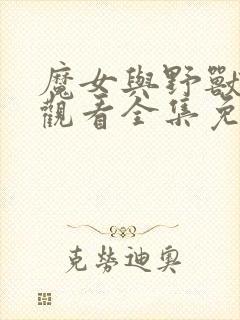 魔女與野獸
觀看全集免
克勞迪奧